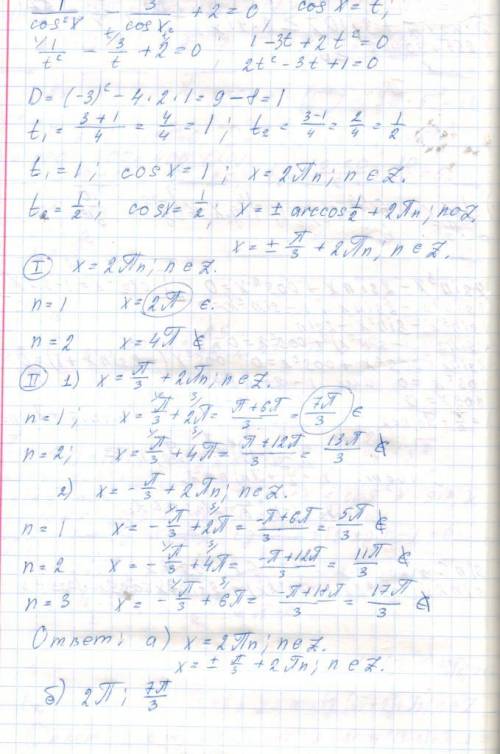 1/cos²x - 3/cosx + 2 = 0   cos x = t;
1/t² - 3/t + 2 = 0   1 - 3t + 2t² = 0
2t² - 3t + 1 = 0
D = (-3)² - 4·2·1 = 9 - 8 = 1
t₁ = (3+1)/4 = 4/4 = 1; t₂ = (3-1)/4 = 2/4 = 1/2
t₁ = 1; cos x = 1; x = 2πn; n ∈ Z.
t₂ = 1/2; cos x = 1/2; x = ± arccos 1/2 + 2πn; n∈Z.
x = ± π/3 + 2πn; n ∈ Z.
I x = 2πn; n ∈ Z.
n = 1 x = 2π ∈.
n = 2 x = 4π ∉
II 1) x = π/3 + 2πn; n∈Z.
n = 1; x = π/3 + 2π = (π+6π)/3 = 7π/3 ∈
n = 2; x = π/3 + 4π = (π+12π)/3 = 13π/3 ∉
2) x = -π/3 + 2πn; n∈Z.
n = 1 x = -π/3 + 2π = (-π+6π)/3 = 5π/3 ∉
n = 2 x = -π/3 + 4π = (-π+12π)/3 = 11π/3 ∉
n = 3 x = -π/3 + 6π = = 17π/3 ∉
Ответ: а) x = 2πn; n∈Z.
x = ± π/3 + 2πn; n∈Z.
б) 2π; 7π/3